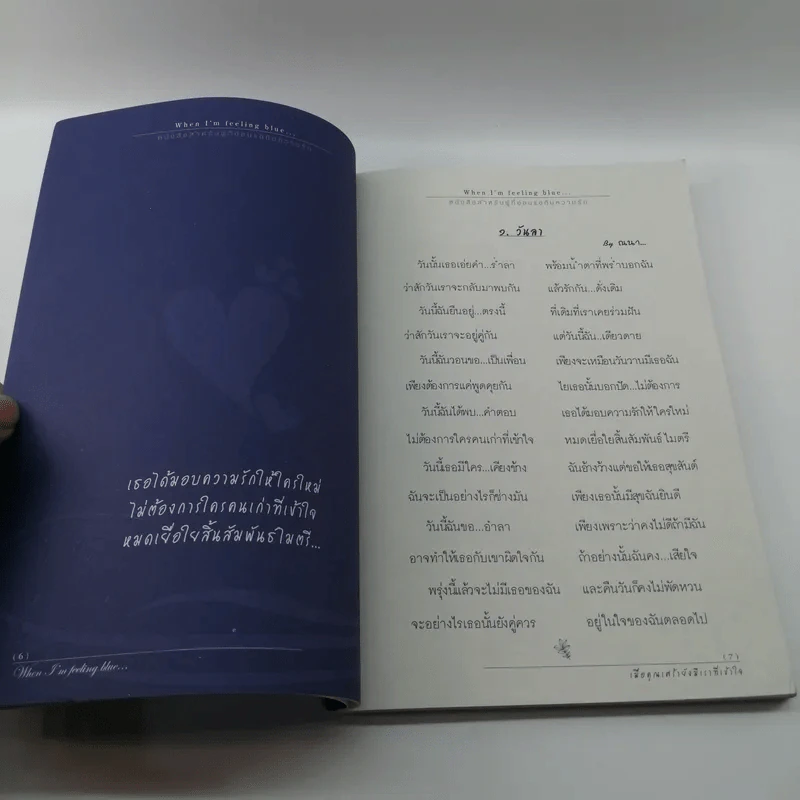 When I'm feeling blue...
หนังสือสำหรับผู้ที่อดนอนกับความรัก
เธอได้มอบความรักให้ใครใหม่
ไม่ต้องการใครคนเก่าที่เข้าใจ
หมดเยื่อใยสิ้นสัมพันธไมตรี...
(6)
When I'm feeling blue...
When I'm feeling blue...
๑. วันลา
By ณนา...
วันนั้นเธอเอ่ยคำ...ร่ำลา พร้อมน้ำตาที่พร่ำบอกฉัน
ว่าสักวันเราจะกลับมาพบกัน แล้วรักกัน...ดั่งเดิม
วันนี้ฉันยืนอยู่...ตรงนี้ ที่เดิมที่เราเคยร่วมฝัน
ว่าสักวันเราจะอยู่คู่กัน แต่วันนี้ฉัน...เดียวดาย
วันนี้ฉันวอนขอ...เป็นเพื่อน เพียงจะเหมือนวันวานมีเธอฉัน
เพียงต้องการแค่พูดคุยกัน ไยเธอนั้นบอกปัด...ไม่ต้องการ
วันนี้ฉันได้พบ...คำตอบ เธอได้มอบความรักให้ใครใหม่
ไม่ต้องการใครคนเก่าที่เข้าใจ หมดเยื่อใยสิ้นสัมพันธ์ไมตรี
วันนี้เธอมีใคร...เคียงข้าง ฉันอ้างว้างแต่ขอให้เธอสุขสันต์
ฉันจะเป็นอย่างไรก็ช่างมัน เพียงเธอนั้นมีสุขฉันยินดี
วันนี้ฉันขอ...อำลา เพียงเพราะว่าคงไม่ดีถ้ามีฉัน
อาจทำให้เธอกับเขาผิดใจกัน ถ้าอย่างนั้นฉันคง...เสียใจ
พรุ่งนี้แล้วจะไม่มีเธอของฉัน และคืนวันก็คงไม่พัดหวน
จะอย่างไรเธอนั้นยังคู่ควร อยู่ในใจของฉันตลอดไป
(7)
เมื่อคุณเศร้ายังมีเราที่เข้าใจ